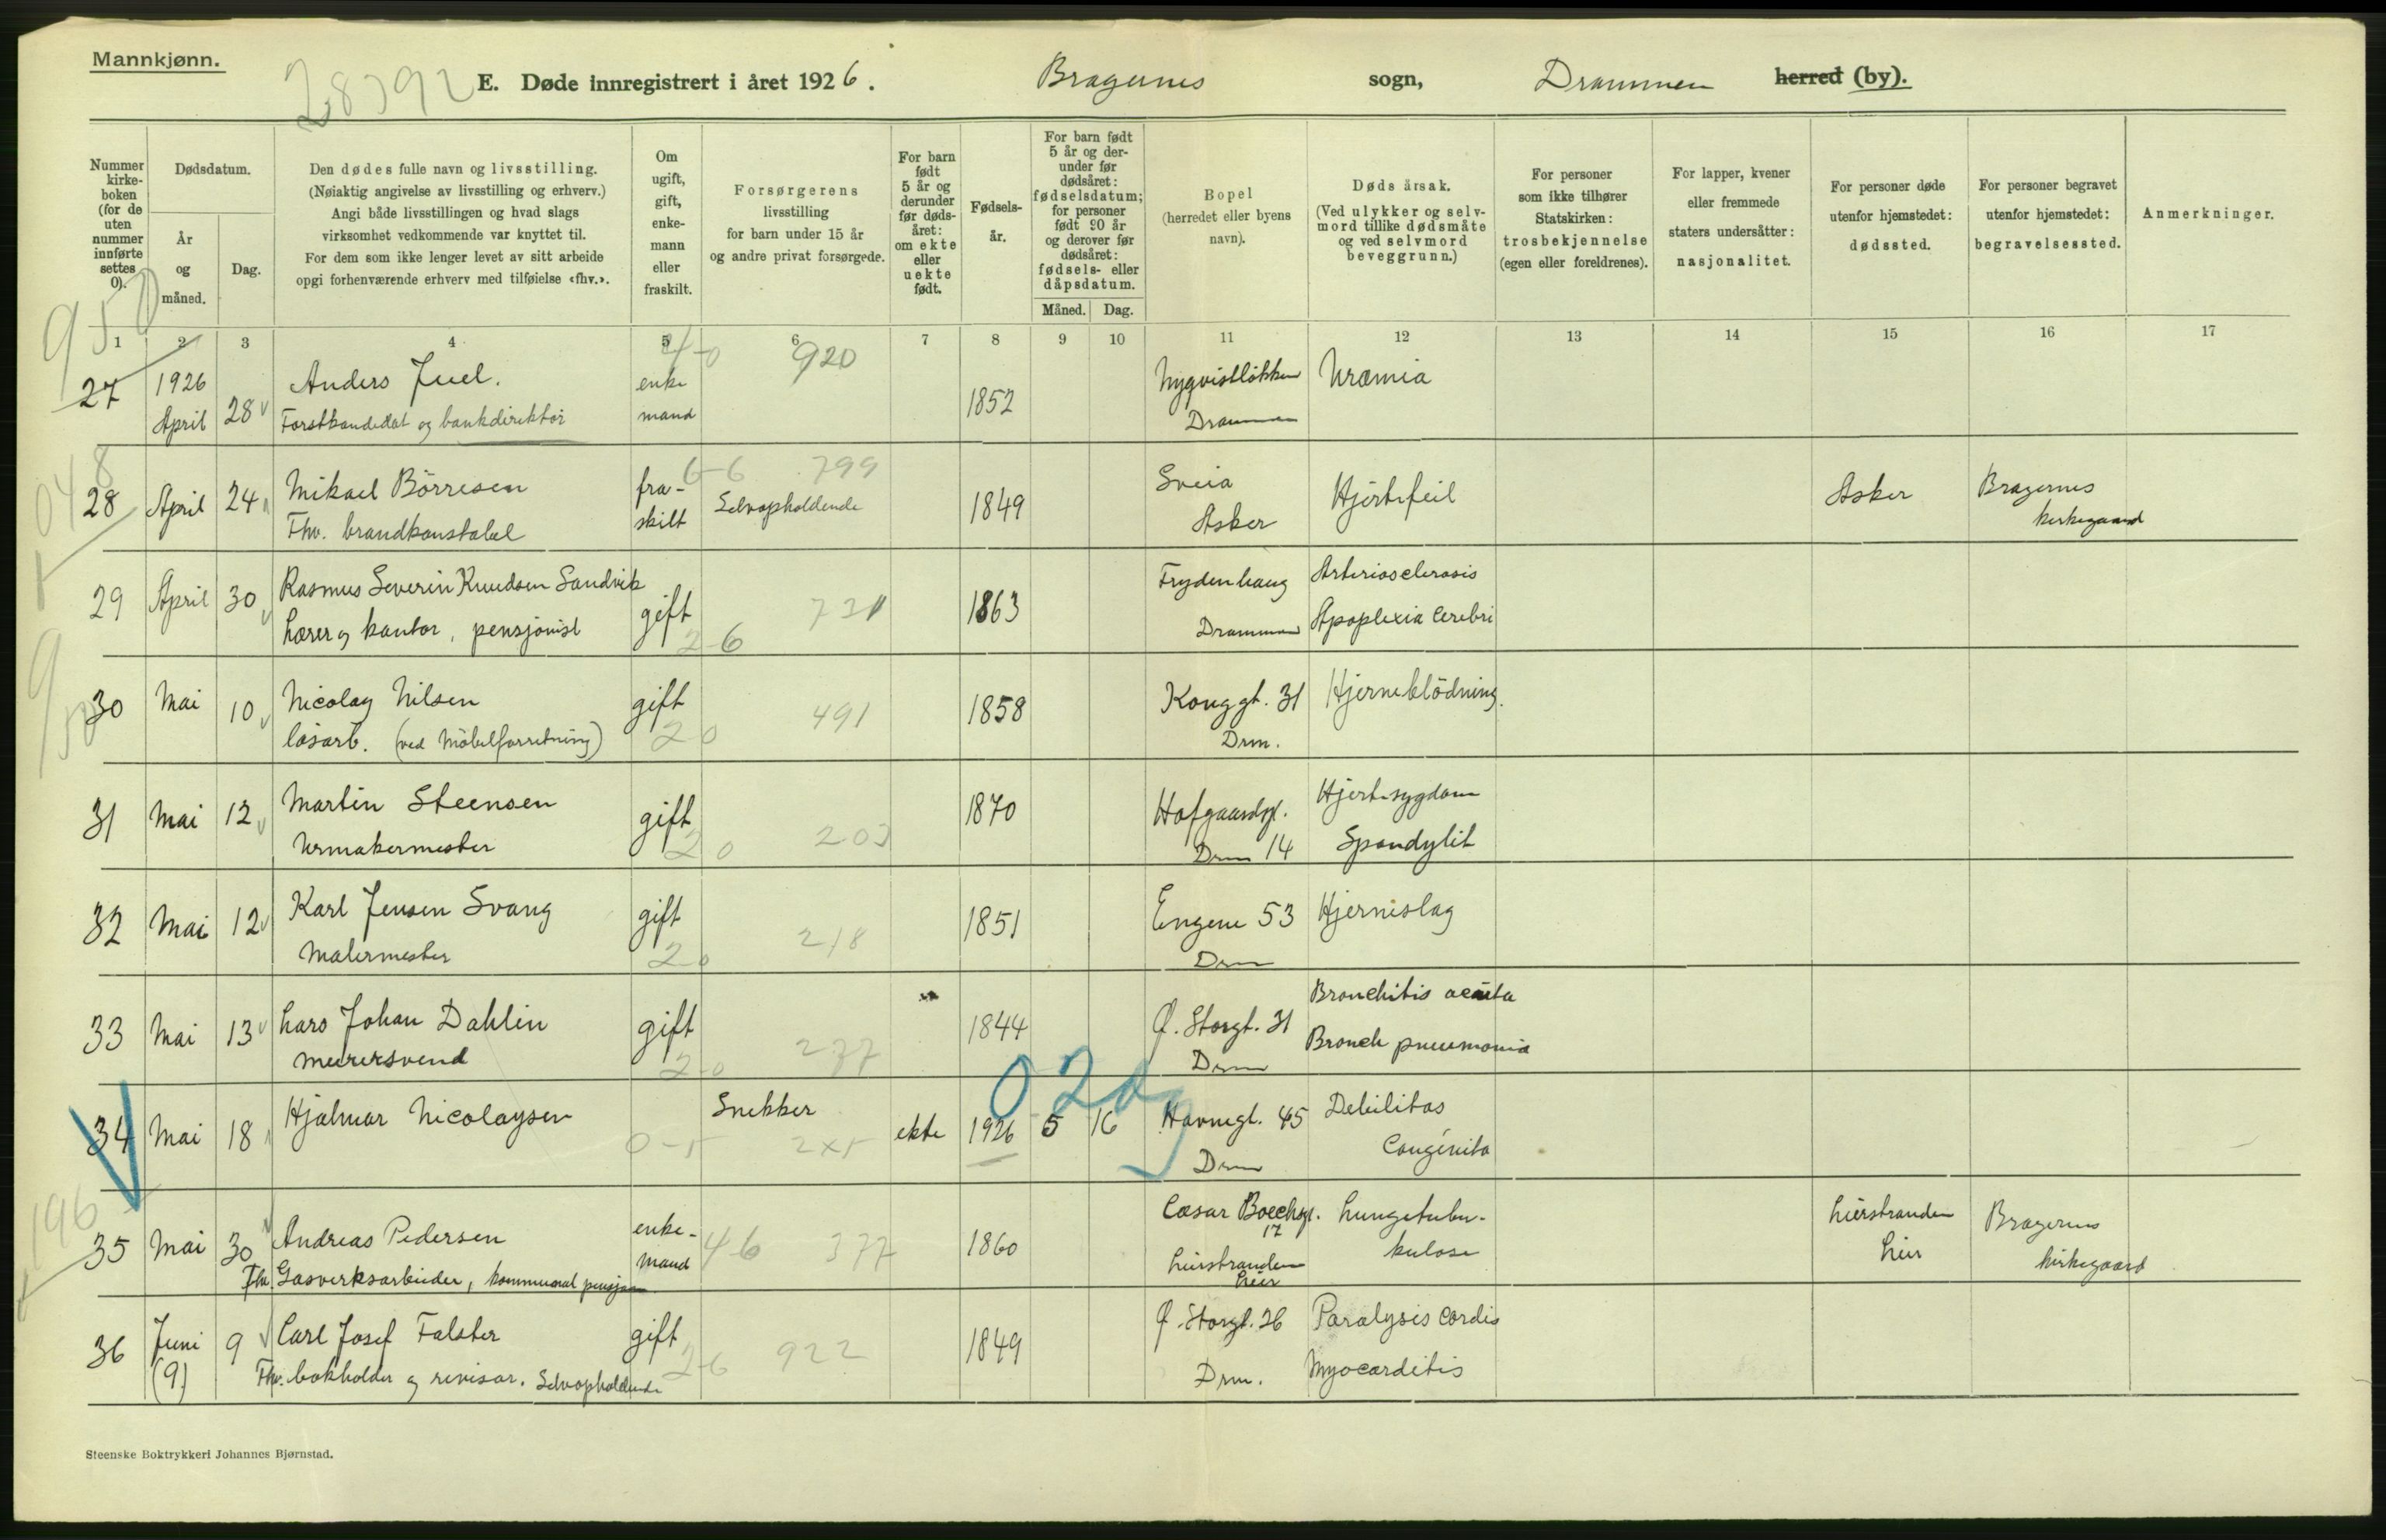 Mannkjønn.
28392
E. Døde innregistrert i året 1926. Bragernes sogn, Drammen herred (by).
Nummer kirke- boken (for de uten nummer innførte settes 0).
Dødsdatum.
År og måned.
Dag.
Den dødes fulle navn og livsstilling.
(Nøiaktig angivelse av livsstilling og erhverv.)
Angi både livsstillingen og hvad slags
virksomhet vedkommende var knyttet til.
For dem som ikke lenger levet av sitt arbeide
opgi forhenværende erhverv med tilføielse «fhv.».
Om ugift, gift, enke- mann eller fraskilt.
Forsørgerens
livsstilling
for barn under 15 år
og andre privat forsørgede.
For barn født 5 år og derunder før døds- året: om ekte eller uekte født.
Fødsels- år.
For barn født 5 år og der- under før dødsåret: fødselsdatum; for personer født 90 år og derover før dødsåret: fødsels- eller dåpsdatum.
Måned. Dag.
Bopel
(herredet eller byens
navn).
Døds årsak.
(Ved ulykker og selv-
mord tillike dødsmåte
og ved selvmord
beveggrunn.)
For personer
som ikke tilhører
Statskirken:
trosbekjennelse
(egen eller foreldrenes).
For lapper, kvener
eller fremmede
staters undersåtter:
nasjonalitet.
For personer døde
utenfor hjemstedet:
dødssted.
For personer begravet
utenfor hjemstedet:
begravelsessted.
Anmerkninger.
1 2 3 4 5 6 7 8 9 10 11 12 13 14 15 16 17
27 1926 April 28 Anders Juel. enke mand 920 1852 Nygvistløkken Uræmia
Forstkandidat og bankdirektør Drammen
28 April 24 Mikael Börresen fra- skilt 6-6 799 Selvopholdende 1849 Sveia Hjertefeil Asker Bragernes
Fhv. brandkonstabel Asker kirkegaard
29 April 30 Rasmus Severin Knudsen Sandvik gift 2-6 721 1863 Frydenhaug Arteriosclerosis
Lærer og kantor, pensjonist Drammen Apoplexia Cerebri
30 Mai 10 Nicolay Nilsen gift 20 491 1858 Konggt. 31 Hjerneblödning.
løsarb. (ved Möbelforretning) Drm.
31 Mai 12 Martin Steensen gift 20 203 1870 Hofgaardsgt. Hjertesygdom
Urmakermester Drm 14 Spondylit
32 Mai 12 Karl Jensen Svang gift 20 218 1851 Engene 53 Hjerneslag
Malermester Drm
33 Mai 13 Lars Johan Dahlin gift 2-0 277 1844 Ø. Storgt. 31 Bronchitis acuta
Murersvend Drm Bronch pneumonia
34 Mai 18 Hjalmar Nicolaysen Snekker ekte 1926 5 16 Havnegt. 45 Debilitas
Drm Congenita
35 Mai 30 Andreas Pedersen enke- mand 46 377 1860 Cæsar Boecksgt. 17 Lungetuber- Lierstranden Bragernes
Fhv. Gasverksarbeider, kommunal pensjon Lierstranden Lier kulose Lier kirkegaard
36 Juni (9) 9 Carl Josef Falster gift 2-6 922 1849 Ø. Storgt. 26 Paralysis Cordis
Fhv. bokholder og revisor. Selvopholdende Drm. Myocarditis
Steenske Boktrykkeri Johannes Bjørnstad.